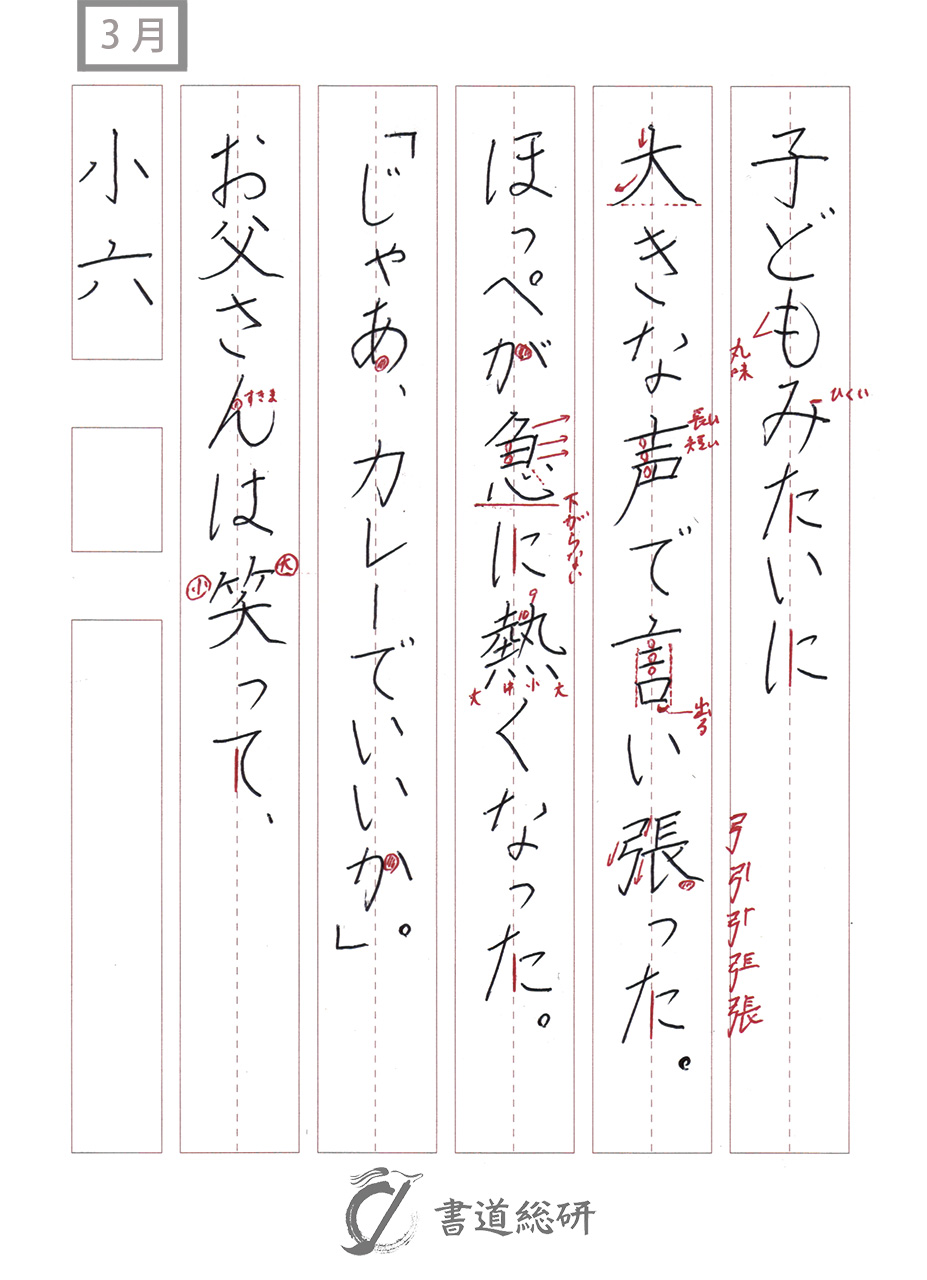 3月
子どもみたいに
丸味
ひくい
弓 引 張
大きな声で言い張った。
長い
短い
出る
ほっぺが急に熱くなった。
下がらない
9
10
大 中 小 大
「じゃあ、カレーでいいか」。
お父さんは笑って、
すきま
小
大
小六
書道総研